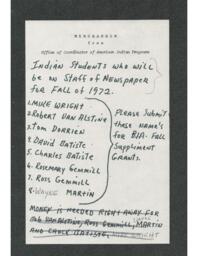 MEMORANDUM
from
Office of Coordinator of American Indian Programs
Indian Students who will
be on Staff of Newspaper
for Fall of 1972.
1. MIKE WRIGHT
2. Robert Van Alstine
3. Tom Dorrien
4. David Batiste
5. Charles Batiste
6. Rosemary Gemmill
7. Ross Gemmill
8. Wayne MARTIN
Please Submit
these name's
for BIA. Fall
Supplement
Grants.
MONEY IS NEEDED RIGHT AWAY FOR
Bob VAN ALSTINE, Ross Gemmill, MARTIN
AND CHUCK BATISTE, MIKE WRIGHT